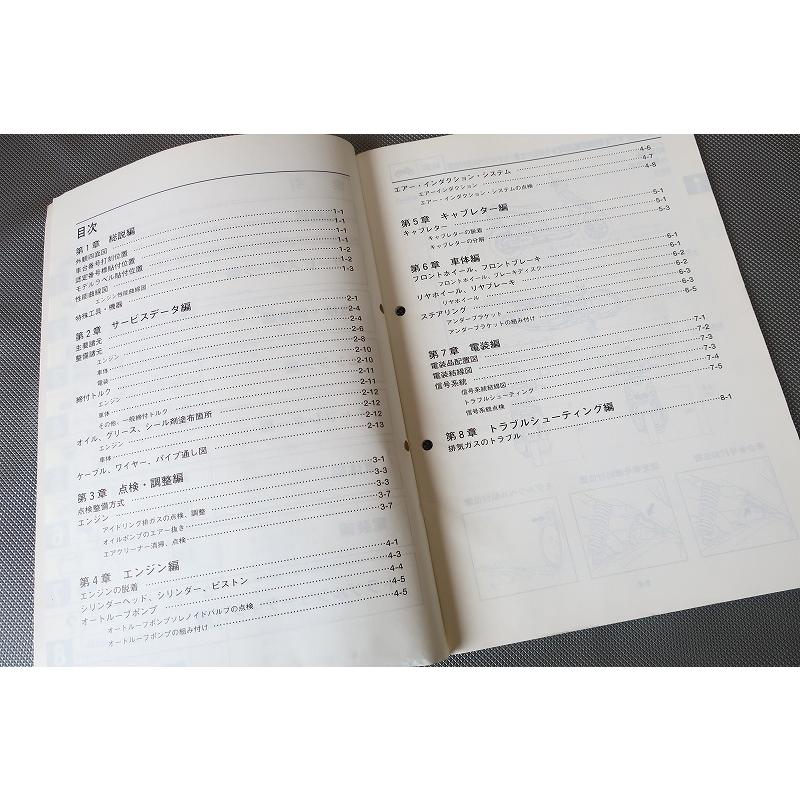 目次
第1章 総説編
外観四面図 1-1
車台番号打刻位置 1-1
認定番号標貼付位置 1-1
モデルラベル貼付位置 1-1
性能曲線図 1-2
エンジン性能曲線図 1-2
特殊工具・機器 1-3
第2章 サービスデータ編
主要諸元 2-1
整備諸元 2-4
エンジン 2-4
車体 2-6
電装 2-8
締付トルク 2-10
エンジン 2-10
車体 2-11
その他、一般締付トルク 2-11
オイル、グリース、シール剤塗布箇所 2-12
エンジン 2-12
車体 2-12
ケーブル、ワイヤー、パイプ通し図 2-13
第3章 点検・調整編
点検整備方式 3-1
エンジン 3-3
アイドリング排ガスの点検、調整 3-3
オイルポンプのエアー抜き 3-7
エアクリーナー清掃、点検 3-7
第4章 エンジン編
エンジンの脱着 4-1
シリンダーヘッド、シリンダー、ピストン 4-3
オートループポンプ 4-4
オートループポンプソレノイドバルブの点検 4-5
オートループポンプの組み付け 4-5
エアー・インダクション・システム 4-6
エアーインダクション 4-7
エアー・インダクション・システムの点検 4-8
第5章 キャブレター編
キャブレター 5-1
キャブレターの脱着 5-1
キャブレターの分解 5-3
第6章 車体編
フロントホイール、フロントブレーキ 6-1
フロントホイール、ブレーキディスク 6-1
リヤホイール、リヤブレーキ 6-2
リヤホイール 6-2
ステアリング 6-3
アンダーブラケット 6-3
アンダーブラケットの組み付け 6-5
第7章 電装編
電装品配置図 7-1
電装結線図 7-2
信号系統 7-3
信号系統結線図 7-3
トラブルシューティング 7-4
信号系統点検 7-5
第8章 トラブルシューティング編
排気ガスのトラブル 8-1